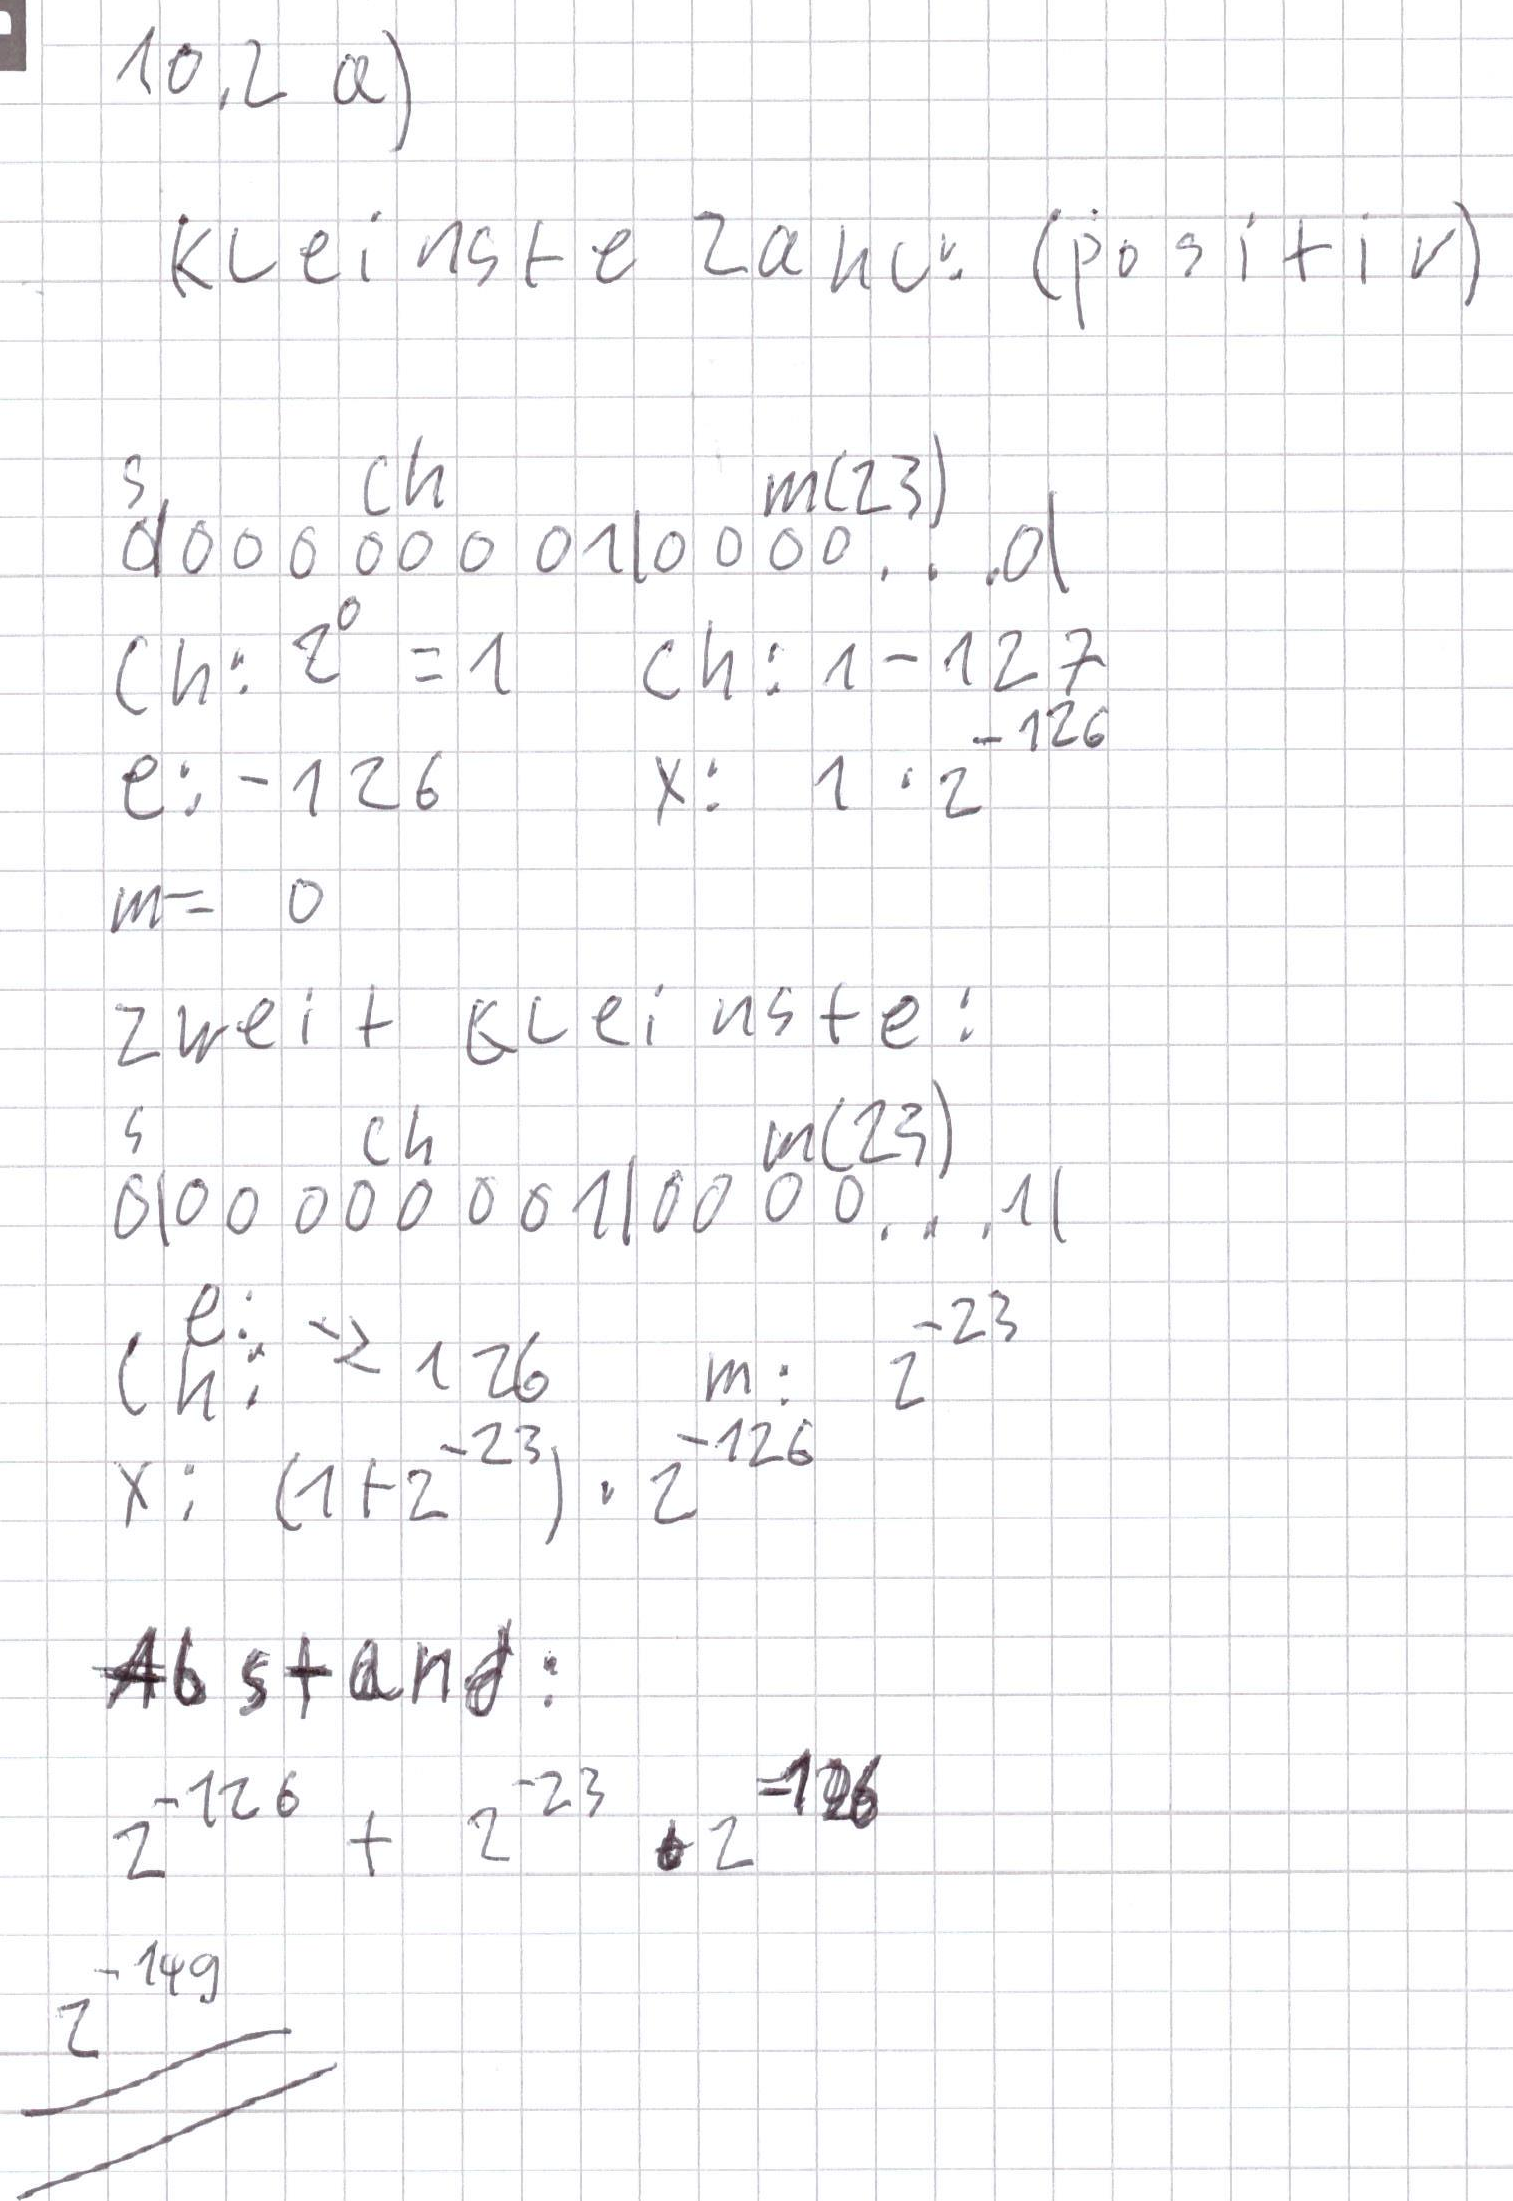 10.2 a)
kleinste Zahl: (positiv)
s ch m(23)
0|00000001|0000...0|
Ch: 2^0 = 1 Ch: 1-127
e: -126 x: 1 · 2^-126
m= 0
zweit kleinste:
s ch m(23)
0|00000001|0000...1|
e:
Ch: -> 126 m: 2^-23
x: (1+2^-23) · 2^-126
Abstand:
2^-126 + 2^-23 · 2^-126
2^-149